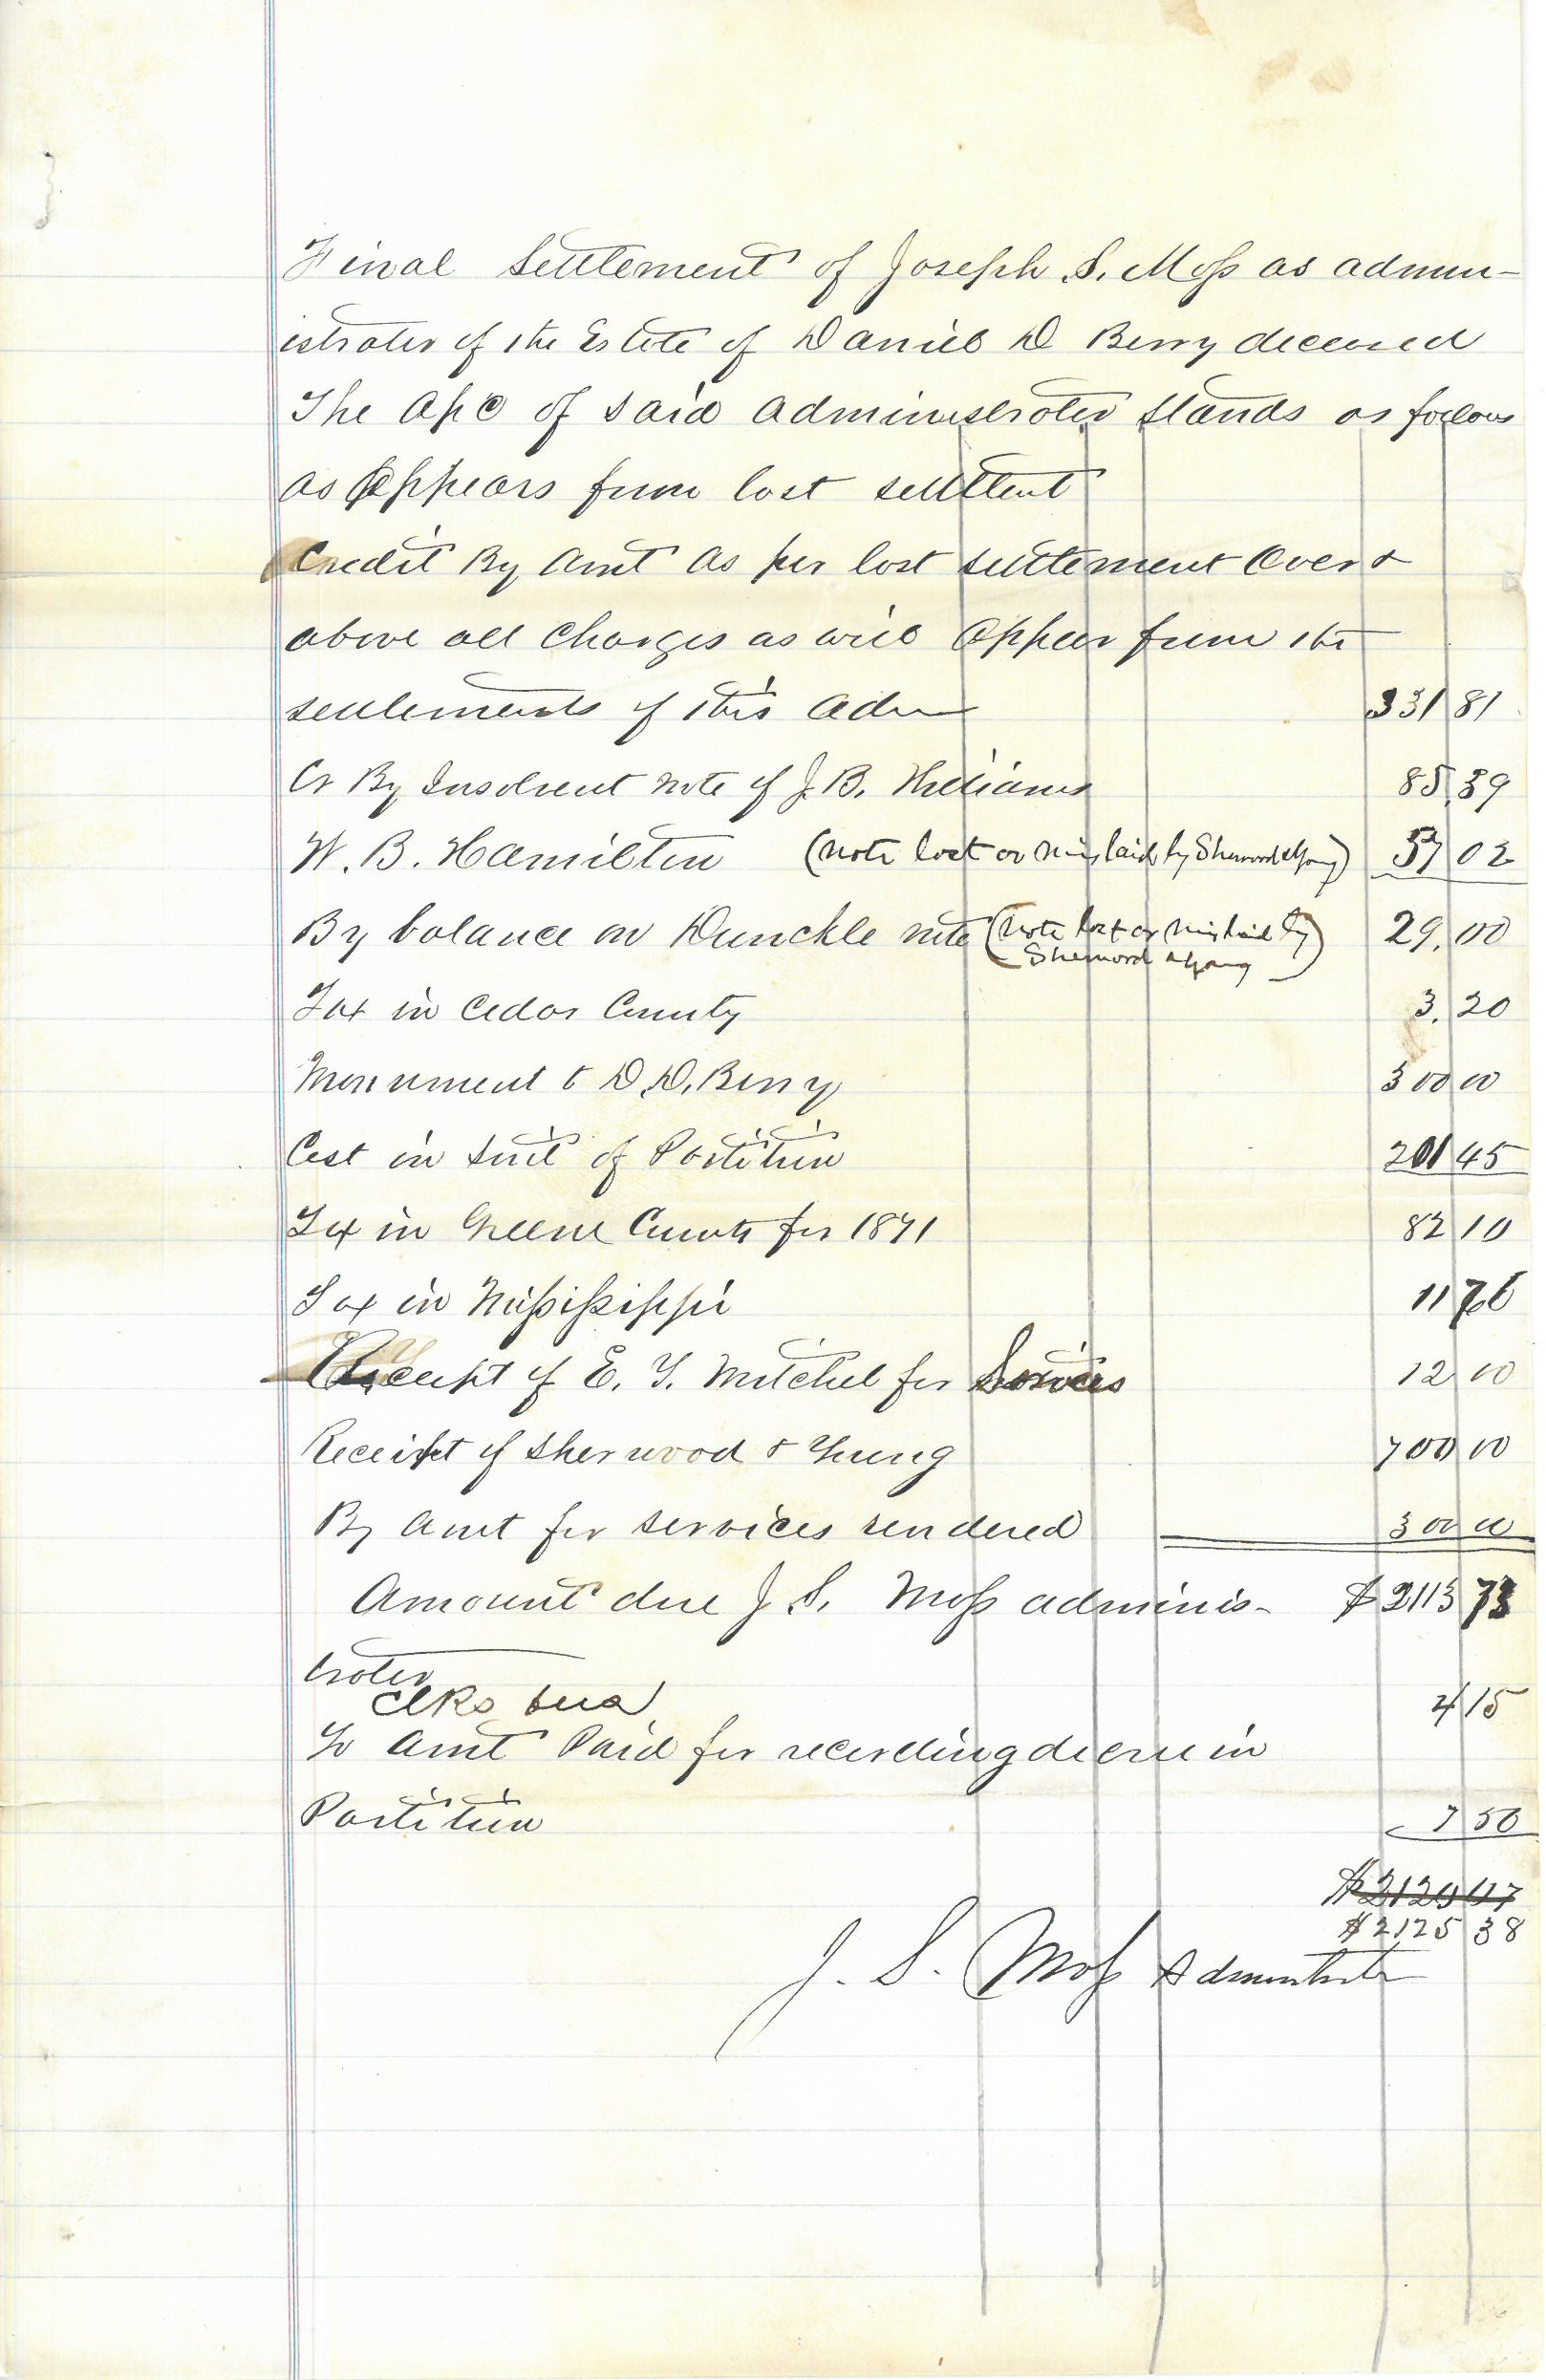 Final Settlement of Joseph S. Moss as admin-
istrator of the Estate of Daniel D Berry deceased
The a/c of said administrator stands as follows
as appears from last settlent
Credit By Amt as per last settlement Over &
above all charges as will appear from the
settlements of this adm 331 81
Cr By Insolvent note of J. B. Williams 85.39
W. B. Hamilton (note lost or mislaid by Sherwood & Young) 57 02
By balance on Dunckle note (note lost or mislaid by
Sherwood & Young) 29.00
Tax in Cedar County 3.20
Monument to D. D. Berry 300 00
Cost in suit of Partition 201 45
Tax in Greene County for 1871 82 10
Tax in Mississippi 11 76
Receipt of E. Y. Mitchel for Services 12 00
Receipt of Sherwood & Young 700 00
By Amt for services rendered 300 00
Amount due J. S. Moss adminis- $2113 73
trator
Clks fees 4 15
To Amt Paid for recording decree in
Partition 7 50
$2125 38
J. S. Moss Administrator